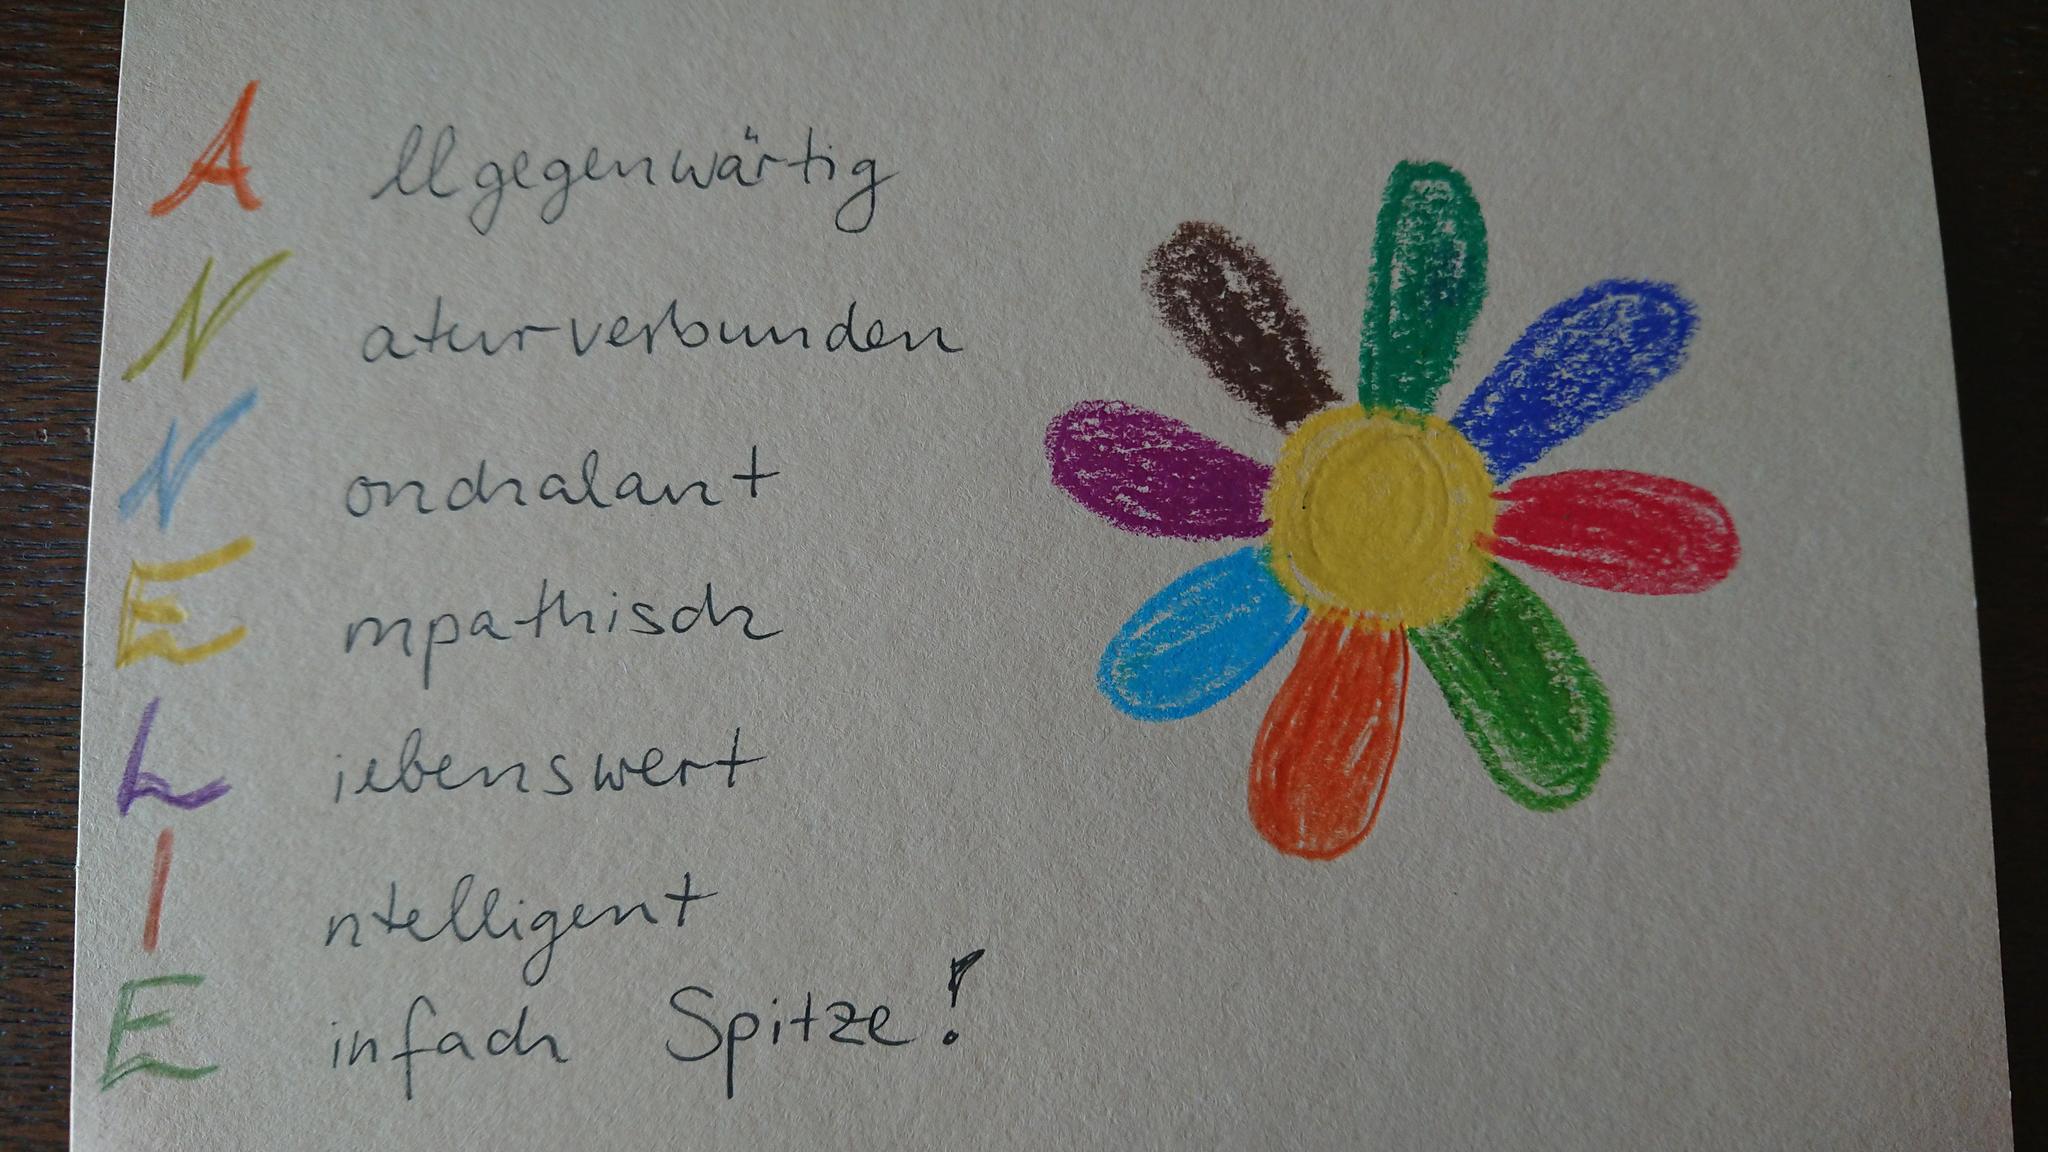 A llgegenwärtig
N aturverbunden
N onchalant
E mpathisch
L iebenswert
I ntelligent
E infach Spitze!